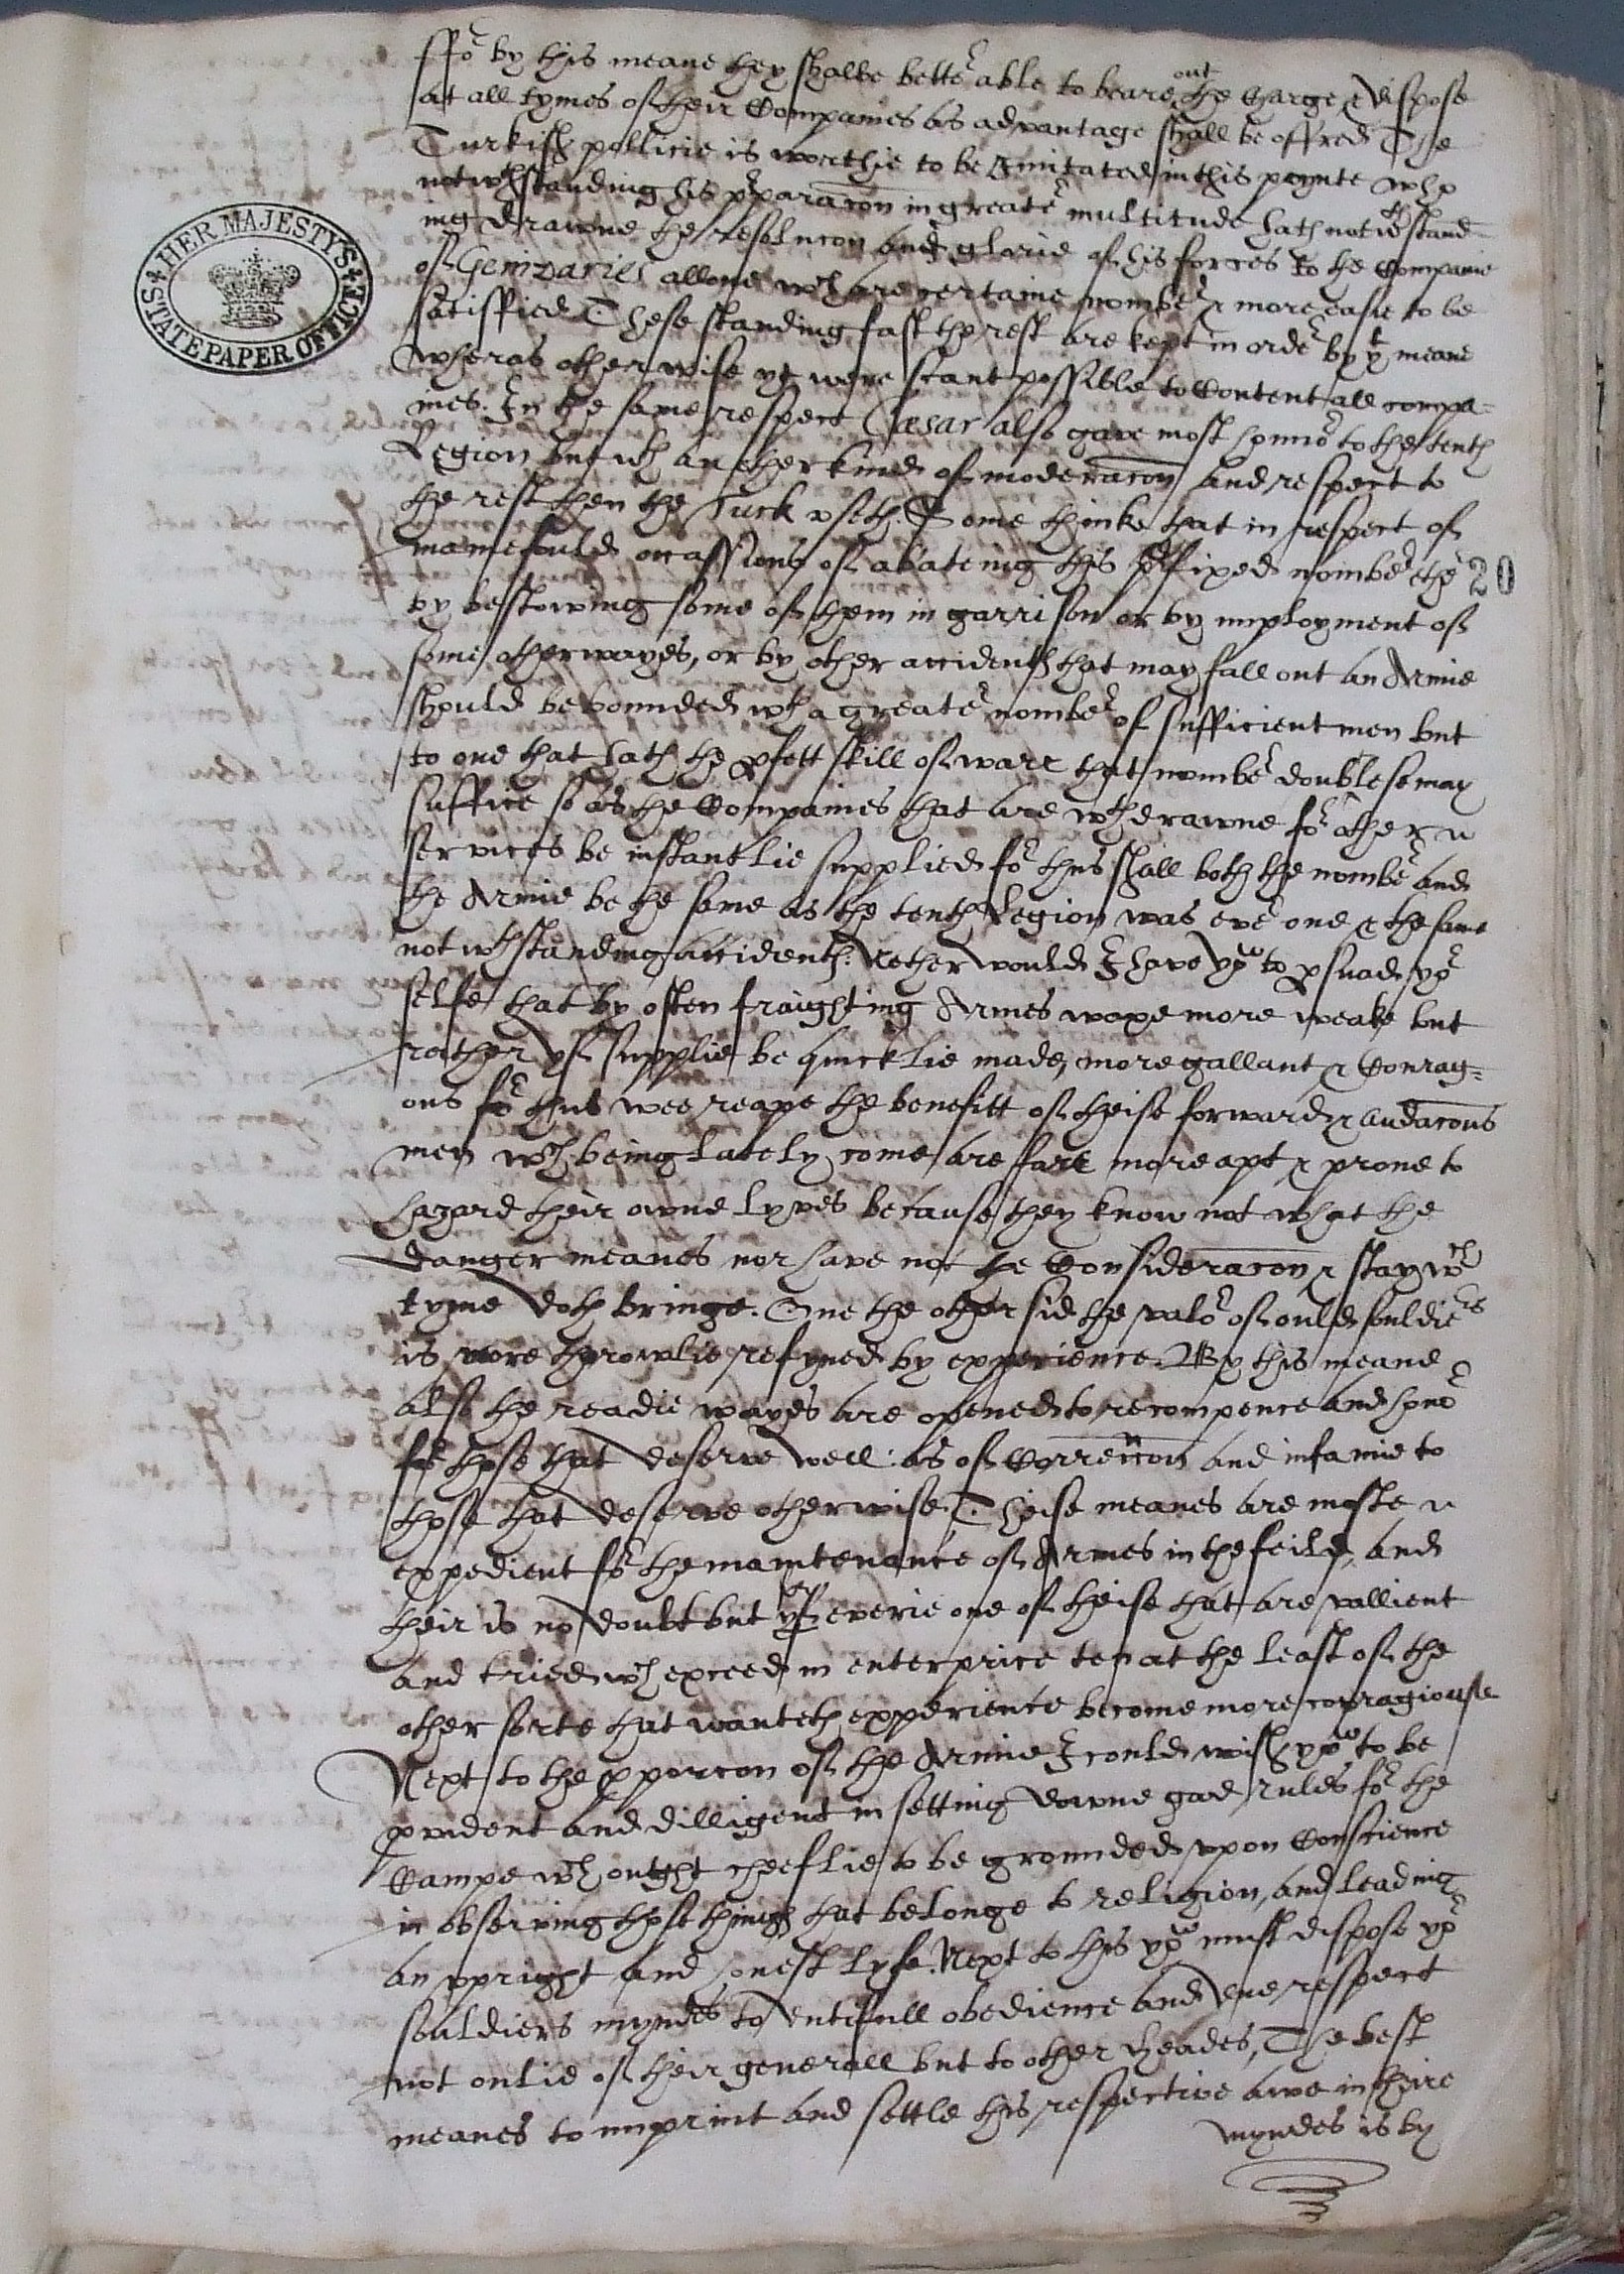 ffor by this meane they shalbe better able to beare out the Charge & dispose
at all tymes of their Companies as advantage shall be offred The
Turkish pollicie is worthie to be Imitated in this poynte who
notwthstanding his pparacon in greater multitude hath notwthstand
ing drawne the resolucon and glorie of his forces to the Companie
of Genizaries allone wch are certaine nomber & more easie to be
satisfied. These standing fast the rest are kept in order by yt meane
Wheras otherwise yt were scant possible to Content all compa=
nies. In the same respect Caesar also gave most honnor to the tenth
Legion but wth an other kind of moderacon and respect to
the rest then the Turk vseth. Some thinke that in respect of
maniefould occassions of abateing this pfixed nomber ether
by bestowing some of them in garrison or by imployment of
some other wayes, or by other accidents that may fall out an Armie
should be bounded wth a greater nomber of sufficient men but
to one that hath the pfett skill of warr that nomber double so may
suffice so as the Companies that are wthdrawne for other
services be instantlie supplied for thus shall both the nomber and
the Armie be the same as the tenth Legion was ever one & the same
notwthstanding accidents: Nether would I have you to pswade yor
selfe that by often fraighting Armes waxe more weake but
rather yf supplie be quicklie made, more gallant & Courag=
ous for thus wee reape the benefitt of theise forward & audacous
men wch being lately come are farr more apt & prone to
hazard their owne lyves because they know not what the
danger meanes nor have not the Consideracon & stay wch
tyme doth bringe. One the other sid the valor of ould souldiers
is more throwlie refyned by experience. By this meane
also the readie wayes are opened to recompence and honor
for those that deserve well: as of Correccon and infamie to
those that deserve otherwise. Theise meanes are moste
expedient for the maintenance of Armes in the feild, and
their is no doubt but yf everie one of theise that are vallient
and tried wch exceed in enterprice ten at the least of the
other sorte that wanteth experience become more corragiouse
Next to the pporcon of the Armie I could wish you to be
prudent and dilligent in setting downe good rules for the
Campe wch ought cheeflie to be grounded vpon Conscience
in observing those things that belonge to religion, and leading
an vpright and honest lyfe. Next to this you must dispose yor
souldiers myndes to dutifull obedience and due respect
not onlie of their generall but to other heades, The best
meanes to imprint and settle this respective awe in theire
myndes is by
HER MAJESTY'S
STATE PAPER OFFICE
20